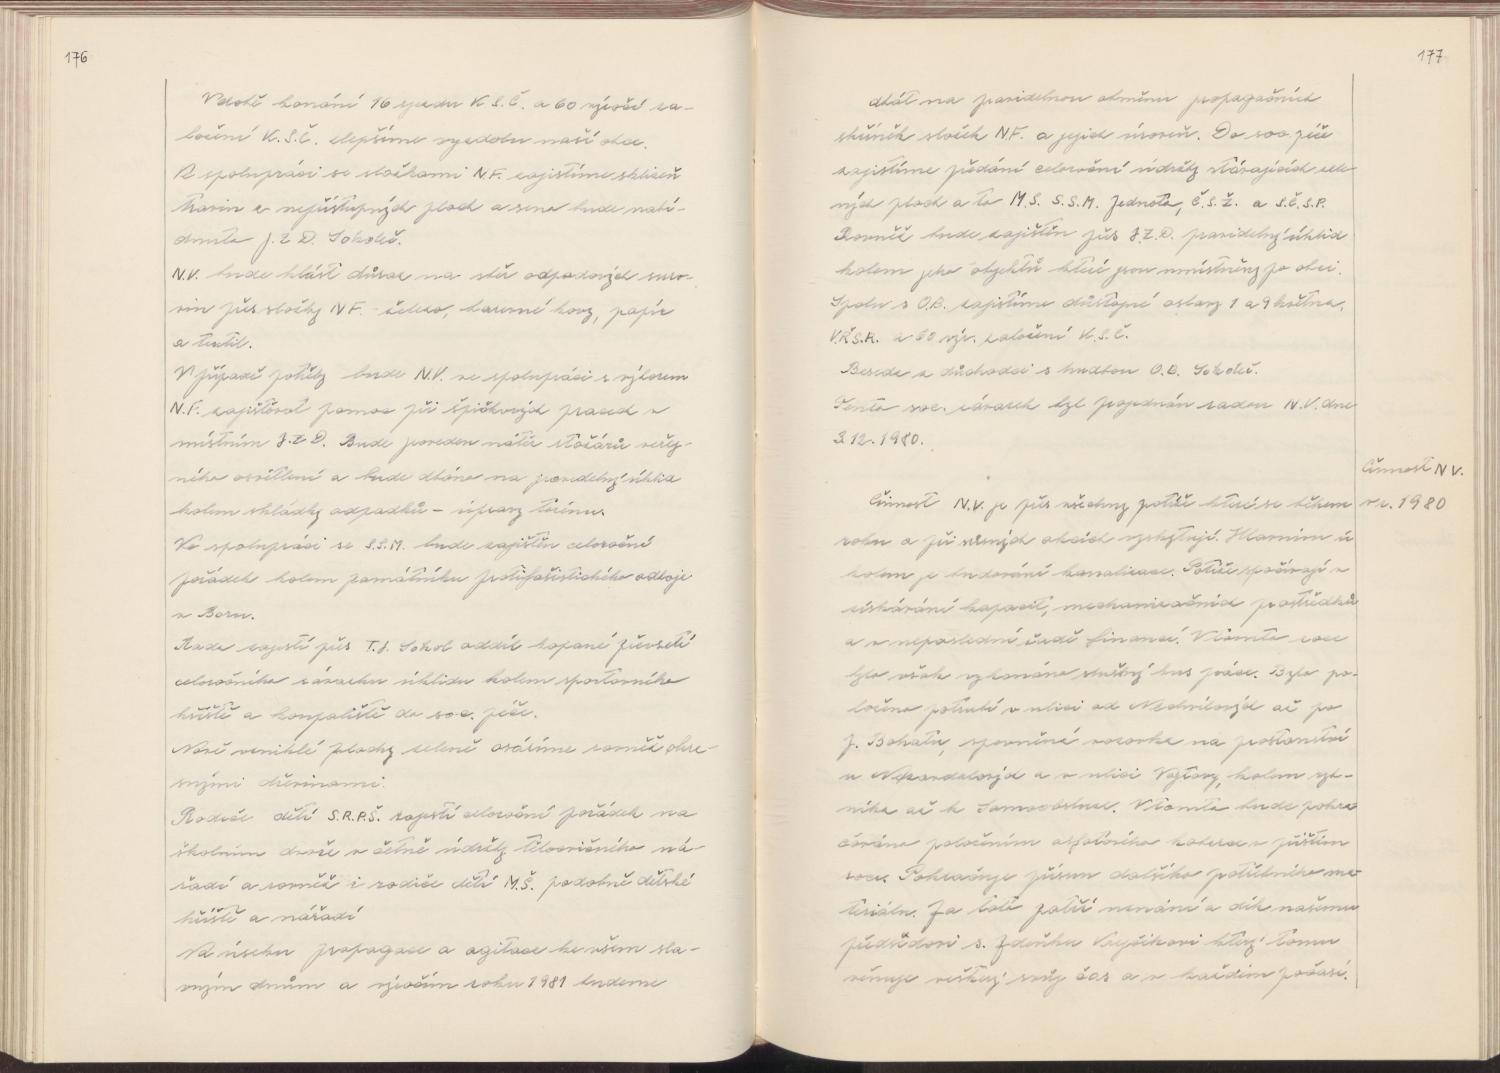 176
V době konání 16 sjezdu K.S.Č. a 60 výročí za-
ložení K.S.Č. zlepšíme výzdobu naší obce.
Ve spolupráci se složkami N.F. zajistíme sklizeň
travin z nepřístupných ploch a seno bude nabí-
dnuto J.Z.D. Sokoleč.
N.V. bude klást důraz na sběr odpadových suro-
vin přes složky N.F. - železo, barevné kovy, papír
a textil.
V případě potřeby bude N.V. ve spolupráci s výborem
N.F. zajišťovat pomoc při špičkových pracech v
místním J.Z.D. Bude proveden nátěr stožárů veřej-
ného osvětlení a bude dbáno na pravidelný úklid
kolem skládky odpadků – úpravy terénu.
Ve spolupráci se S.S.M. bude zajištěn celoroční
pořádek kolem památníku protifašistického odboje
v Boru.
Rada zajistí přes T.J. Sokol oddíl kopané převzetí
celoročního závazku úklidu kolem sportovního
hřiště a koupaliště do soc. péče.
Nově vzniklé plochy zeleně osázíme rovněž okra-
snými dřevinami.
Rodiče dětí S.R.P.Š. zajistí celoroční pořádek na
školním dvoře v četně údržby tělocvičného ná-
řadí a rovněž i rodiče dětí M.Š. podobně dětské
hřiště a nářadí
Na úseku propagace a agitace ke všem sla-
vným dnům a výročím roku 1981 budeme
177
dbát na pravidelnou obměnu propagačních
skříněk složek NF. a jejich úroveň. Do soc. péče
zajistíme předání celoroční údržby stávajících zele-
ných ploch a to M.S. S.S.M. Jednota, Č.S.Ž. a S.Č.S.P.
Rovněž bude zajištěn přes J.Z.D. pravidelný úklid
kolem jeho objektů které jsou umístněny po obci.
Spolu s O.B. zajistíme důstojné oslavy 1 a 9 května,
V.Ř.S.R. a 60 výr. založení K.S.Č.
Beseda s důchodci s hudbou O.B. Sokoleč.
Tento soc. závazek byl projednán radou N.V. dne
3.12.1980.
Činnost N V.
v r. 1980
Činnost N.V. je přes všechny potíže které se během
roku a při různých akcích vyskytují. Hlavním ú
kolem je budování kanalizace. Potíže spočívají v
získávání kapacit, mechanizačních prostředků
a v neposlední řadě financí. V tomto roce
bylo však vykonáno slušný kus práce. Bylo po-
loženo potrubí v ulici od Nechvílových až po
J. Bohatu, zpevněné vozovka na prostranství
u a v ulici Vojtovy, kolem
níka až k Samoobsluze. V tomto bude pokra
čováno položením asfaltového koberce v příštím
roce. Pokračuje přísun dalšího potřebného ma
teriálu. Za toto patří uznání a dík našemu
předsedovi s. Zdeňku Krejčíkovi který tomu
věnuje veškerý svůj čas a v každém počasí.